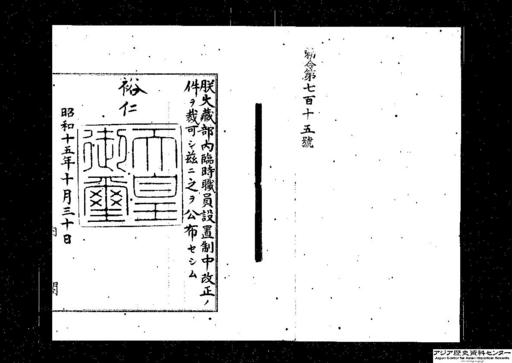 勅令第七百十五號
朕大蔵部内臨時職員設置制中改正ノ
件ヲ裁可シ茲ニ之ヲ公布セシム
裕仁
天皇
御璽
昭和十五年十月三十日
アジア歴史資料センター
Japan Center for Asian Historical Records